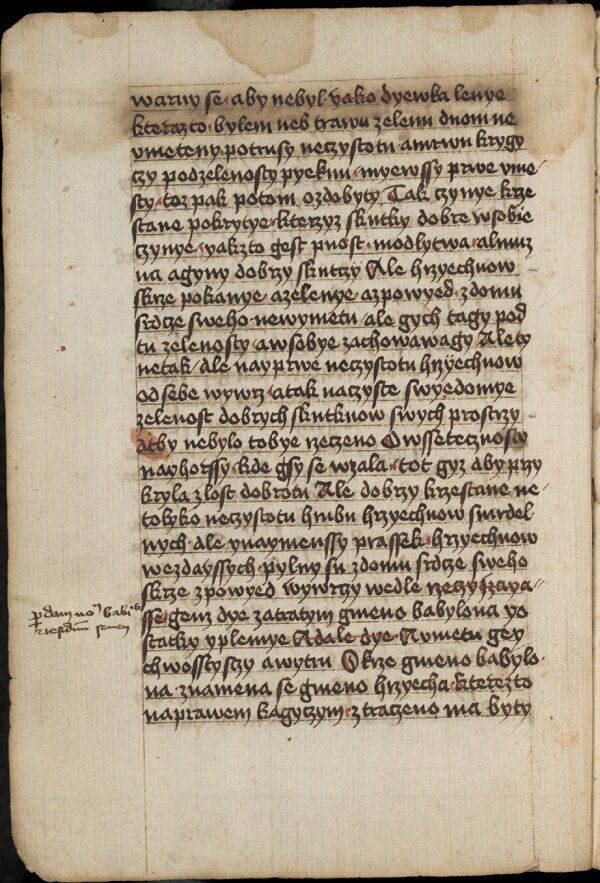 waruy se · aby nebyl · yako dyewka lenye
kterazto · bylem neb trawu zelenu dnom ne
vmeteny potrusy neczystotu a mrwu krygy
czy podzelenosty pyeknu · myewssy prwe vme
sty · toz pak potom ozdobyty Tak czynye krze
stane pokrytye · kterzyz skutky dobre wsobie
czynye · yakzto gest pust · modlytwa · almuz
na a gyny dobrzy skutczy Ale hrzyechuow
skrze pokanye azelenye azpowyed · zdomu
srdcze sweho · newymetu · ale gych tagy pod
tu zelenosty · awsobye zachowawagy Ale ty
netak · Ale nayprwe neczystotu hrzyechuow
od sebe wywrz · atak naczyste swyedomye
zelenost dobrych skutkuow swych prostrzy
atby nebylo tobye rzeczeno O wssetecznosty
nayhorssy · kde gsy se wzala · tot gyz aby przy
kryla zlost dobrotu Ale dobrzy krzestane ne
tolyko neczystotu hrubu hrzyechuow smrdel
nych · ale ynaymenssy prassek · hrzyechuow
wezdayssych · pylny su zdomu srdcze sweho
skrze zpowyed wywrzy wedle rzeczy Izaya
sse · genz dye zatratym gmeno babylona yo
statky yplemye A dale dye · A vmetu gey
chwosstyszy awytru Skrze gmeno babylo
na · znamena se gmeno hrzyecha · kterezto
naprawem kagyczym · ztraczeno ma byty